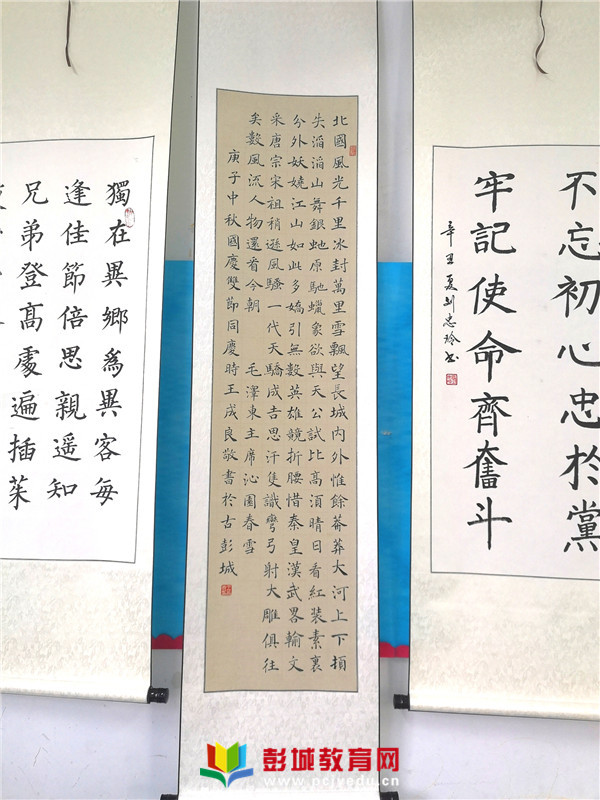 不忘初心忠於黨
牢記使命齊奮斗
辛丑夏刘忠玲书
北國風光千里冰封萬里雪飄望長城内外惟餘莽莽大河上下頓
失滔滔山舞銀虵原馳蠟象欲與天公試比高湏晴日看紅装素裹
分外妖嬈江山如此多嬌引無數英雄競折腰惜秦皇漢武畧輸文
采唐宗宋祖稍遜風騷一代天驕成吉思汗隻識彎弓射大雕俱往
矣數風流人物還看今朝 毛澤東主席沁園春雪
庚子中秋國慶雙節同慶時王成良敬書於古彭城
獨在異鄉爲異客每
逢佳節倍思親遥知
兄弟登高處遍插茱
彭城教育网
www.pcjyedu.cn